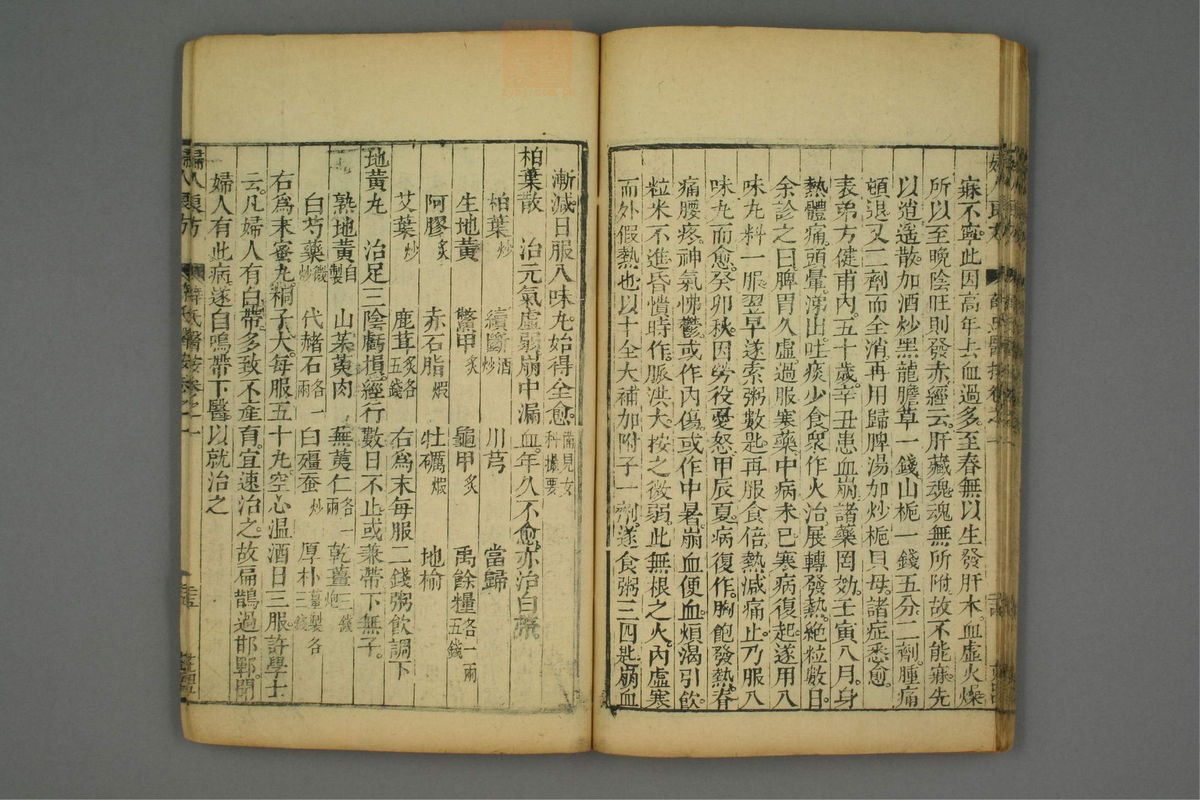 寐不寧此因高年去血過多至春無以生發肝木血虛火燥
所以至晚陰旺則發赤經云肝藏魂魂無所附故不能寐先
以逍遥散加酒炒黑龍膽草一錢山梔一錢五分二劑腫痛
頓退又二劑而全消再用歸脾湯加炒梔貝母諸症悉愈
表弟方健甫内五十歲辛丑患血崩諸藥罔効壬寅八月身
熱體痛頭暈涕出吐痰少食衆作火治展轉發熱絶粒數日
余診之曰脾胃久虛過服寒藥中病未已寒病復起遂用八
味丸料一服翌早遂索粥數匙再服食倍熱減痛止乃服八
味丸而愈癸卯秋因勞役憂怒甲辰夏病復作胸飽發熱脊
痛腰疼神氣怫鬱或作内傷或作中暑崩血便血煩渴引飲
粒米不進昏憒時作脈洪大按之微弱此無根之火内虛寒
而外假熱也以十全大補加附子一劑遂食粥三四匙崩血
漸減日服八味丸始得全愈
柏葉散 治元氣虛弱崩中漏血年久不愈亦治白帶
柏葉炒 續斷酒炒 川芎 當歸
生地黃 鱉甲炙 龜甲炙 禹餘糧各一兩五錢
阿膠炙 赤石脂煆 牡礪煆 地榆
艾葉炒 鹿茸炙各五錢 右爲末每服二錢粥飲調下
地黃丸 治足三陰虧損經行數日不止或兼帶下無子
熟地黃自製 山茱萸肉 蕪荑仁各一兩 乾薑炮三錢
白芍藥微炒 代赭石各一兩 白殭蚕炒 厚朴薑製各三錢
右爲末蜜丸桐子大每服五十丸空心温酒日三服許學士
云凡婦人有白帶多致不產育宜速治之故扁鵲過邯鄲聞
婦人有此病遂自鳴帶下醫以就治之
婦人良方